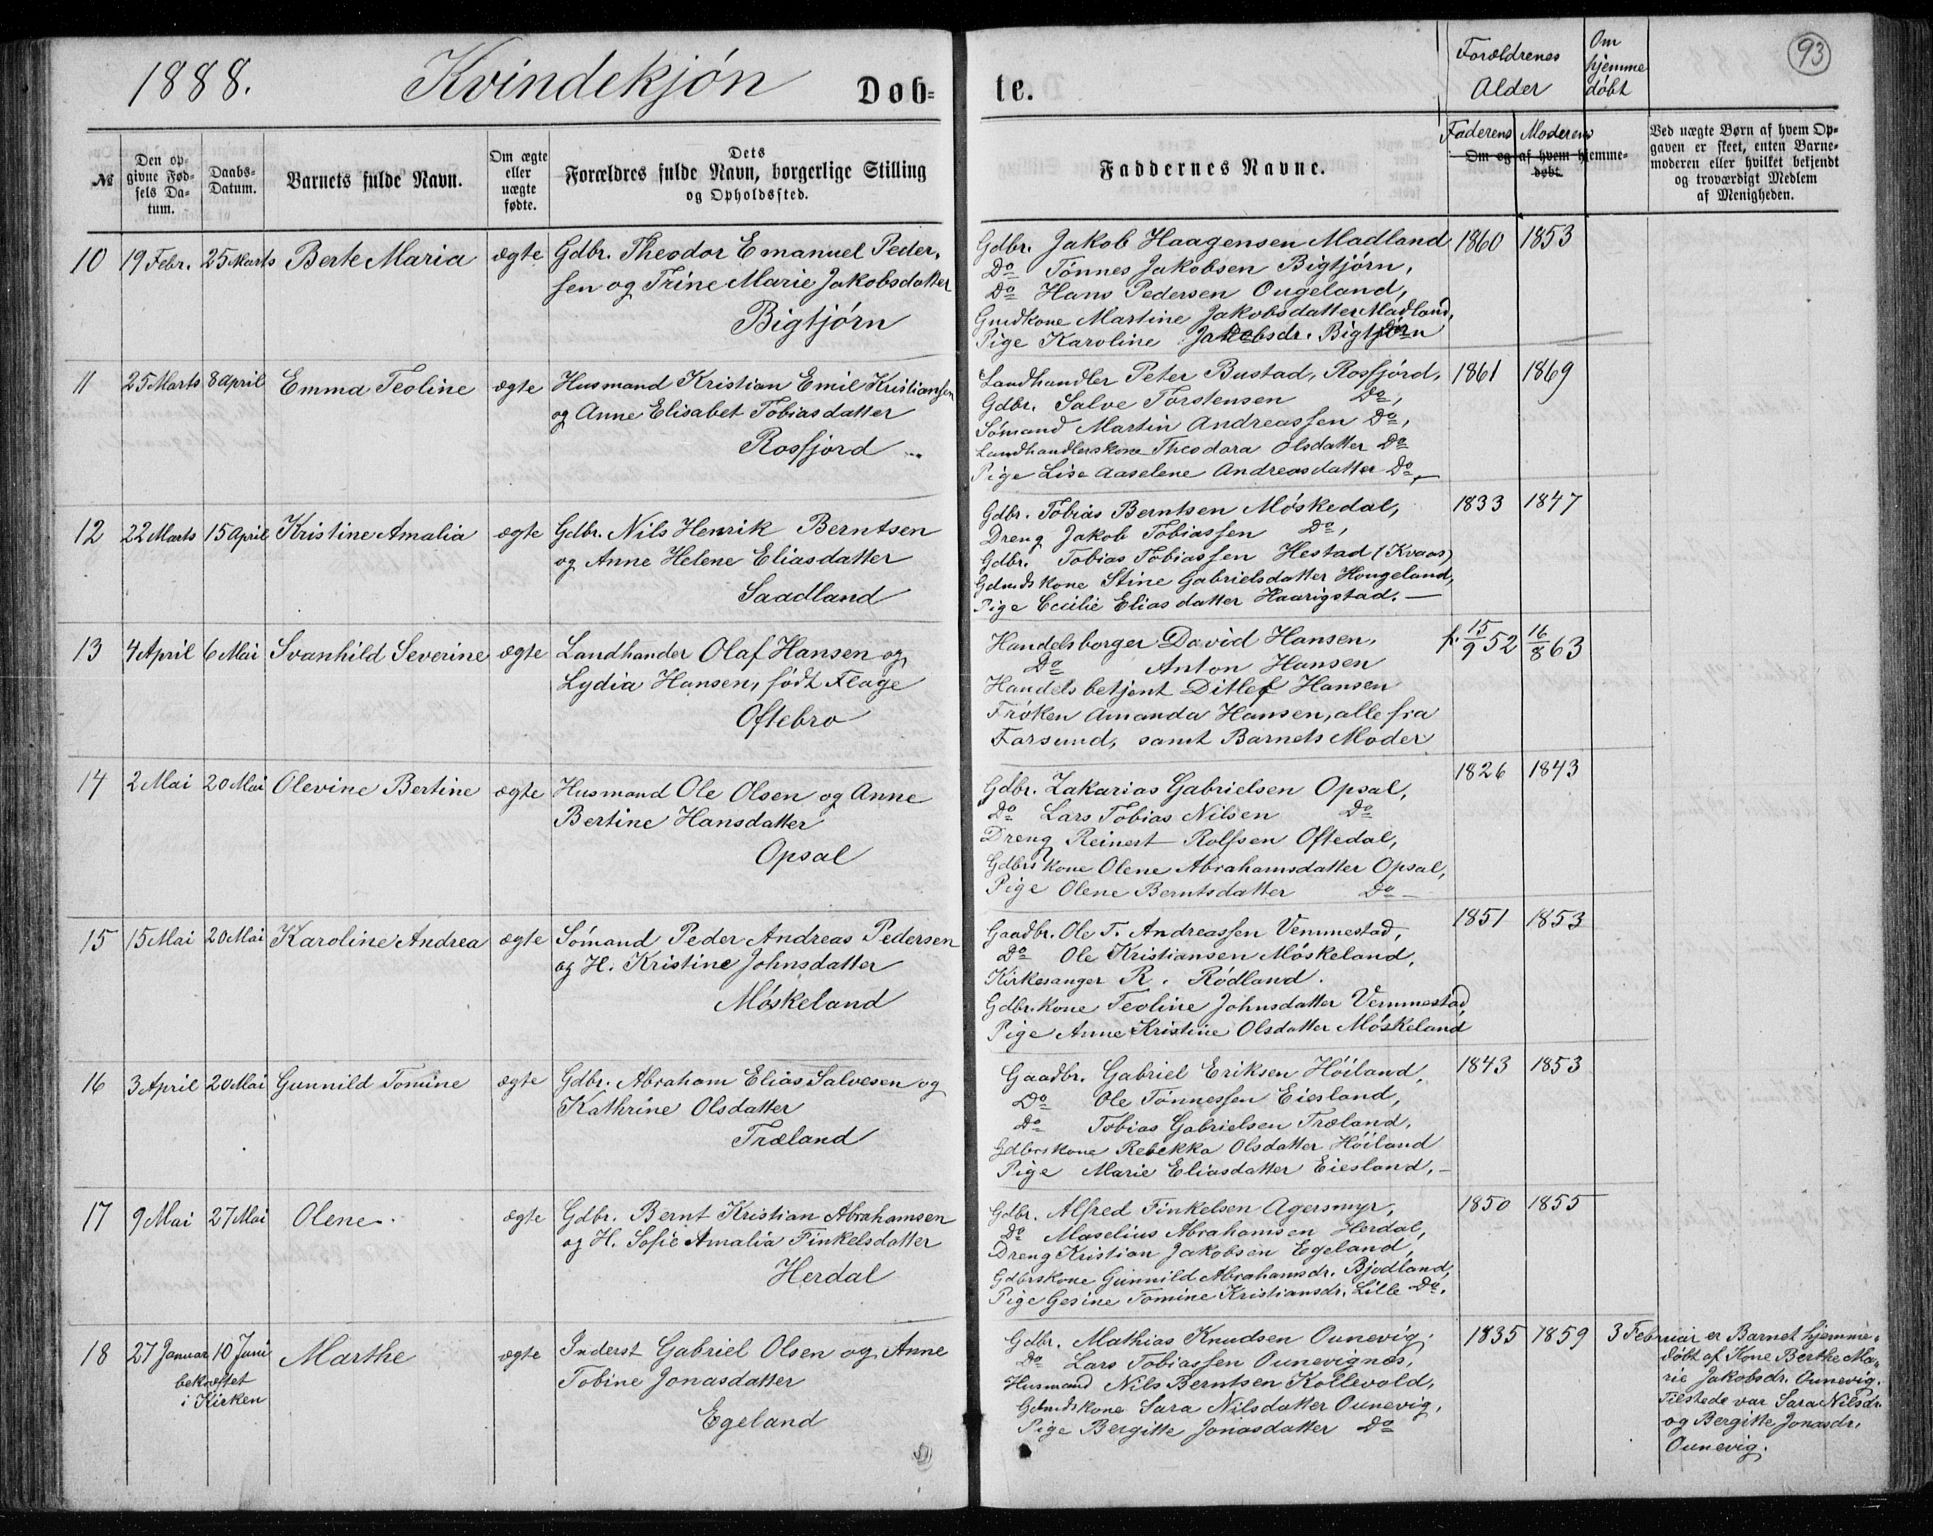 1888. Kvindekjøn Døb-
te.
Forældrenes Alder
Om hjemme døbt
93
№
Den opgivne Fødsels Datum.
Daabs-Datum.
Barnets fulde Navn.
Om ægte eller uægte fødte.
Dets Forældres fulde Navn, borgerlige Stilling og Opholdssted.
Faddernes Navne.
Faderens Moderens
Om og af hvem hjemme-døbt.
Ved uægte Børn af hvem Op-
gaven er skeet, enten Barne-
moderen eller hvilket bekjendt
og troværdigt Medlem
af Menigheden.
10 19 Febr. 25 Marts Berte Maria ægte
Gdbr. Theodor Emanuel Peder-
sen og Trine Marie Jakobsdatter
Bigtjørn
Gdbr. Jakob Haagensen Madland
Do Tønnes Jakobsen Bigtjørn,
Do Hans Pedersen Ougeland,
Gmdkone Martine Jakobsdatter Madland,
Pige Karoline Jakobsdr. Bigtjørn
1860 1853
11 25 Marts 8 April Emma Teoline ægte
Husmand Kristian Emil Kristiansen
og Anne Elisabet Tobiasdatter
Rosfjord
Landhandler Peter Bustad, Rosfjord,
Gdbr. Salve Torstensen Do,
Sømand Martin Andreassen Do,
Landhandlerskone Theodora Olsdatter Do
Pige Lise Aaselene Andreasdatter Do,
1861 1869
12 22 Marts 15 April Kristine Amalia ægte
Gdbr. Nils Henrik Berntsen
og Anne Helene Eliasdatter
Saadland
Gdbr. Tobias Berntsen Møskedal,
Dreng Jakob Tobiassen Do,
Gdbr. Tobias Tobiassen Hestad (Kvaas)
Gdmdskone Stine Gabrielsdatter Hougeland,
Pige Cecilie Eliasdatter Haarigstad. —
1833 1847
13 4 April 6 Mai Svanhild Severine ægte
Landhander Olaf Hansen og
Lydia Hansen, født Flage
Oftebro
Handelsborger David Hansen,
Do Anton Hansen
Handelsbetjent Ditlef Hansen
Frøken Amanda Hansen, alle fra
Farsund, samt Barnets Moder
f. 15/9 52 16/8 63
14 2 Mai 20 Mai Olevine Bertine ægte
Husmand Ole Olsen og Anne
Bertine Hansdatter
Opsal
Gdbr. Zakarias Gabrielsen Opsal,
Do Lars Tobias Nilsen Do
Dreng Reinert Rolfsen Oftedal,
Gdbrskone Olene Abrahamsdatter Opsal,
Pige Olene Berntsdatter Do —
1826 1843
15 15 Mai 20 Mai Karoline Andrea ægte
Sømand Peder Andreas Pedersen
og H. Kristine Johnsdatter
Møskeland
Gaadbr. Ole T. Andreassen Vemmestad,
Do Ole Kristiansen Møskeland,
Kirkesanger R. Rødland.
Gdbr.kone Teoline Johnsdatter Vemmestad,
Pige Anne Kristine Olsdatter Møskeland
1851 1853
16 3 April 20 Mai Gunnild Tomine ægte
Gdbr. Abraham Elias Salvesen og
Kathrine Olsdatter
Træland
Gaadbr. Gabriel Eriksen Høiland,
Do Ole Tønnessen Eiesland,
Do Tobias Gabrielsen Træland,
Gdbrskone Rebekka Olsdatter Høiland
Pige Marie Eliasdatter Eiesland, —
1843 1853
17 9 Mai 27 Mai Olene. ægte
Gdbr. Bernt Kristian Abrahamsen
og H. Sofie Amalia Finkelsdatter
Herdal
Gdbr. Alfred Finkelsen Agersmyr,
Do Maselius Abrahamsen Herdal,
Dreng Kristian Jakobsen Egeland,
Gdbrskone Gunnild Abrahamsdr. Bjodland,
Pige Gesine Tomine Kristiansdr. Lille Do.
1850 1855
18 27 Januar 10 Juni Marthe ægte
bekræftet
i Kirken
Inderst Gabriel Olsen og Anne
Tobine Jonasdatter
Egeland
Gdbr. Mathias Knudsen Ounevig,
Do Lars Tobiassen Ounevignes,
Husmand Nils Berntsen Kollevold,
Gdmdskone Sara Nilsdatter Ounevig,
Pige Bergitte Jonasdatter Do
1835 1859
3 Februar er Barnet hjemme-
døbt af Kone Berthe Ma-
rie Jakobsdr. Ounevig.
Tilstede var Sara Nilsdr.
og Bergitte Jonasdr.
Ounevig.